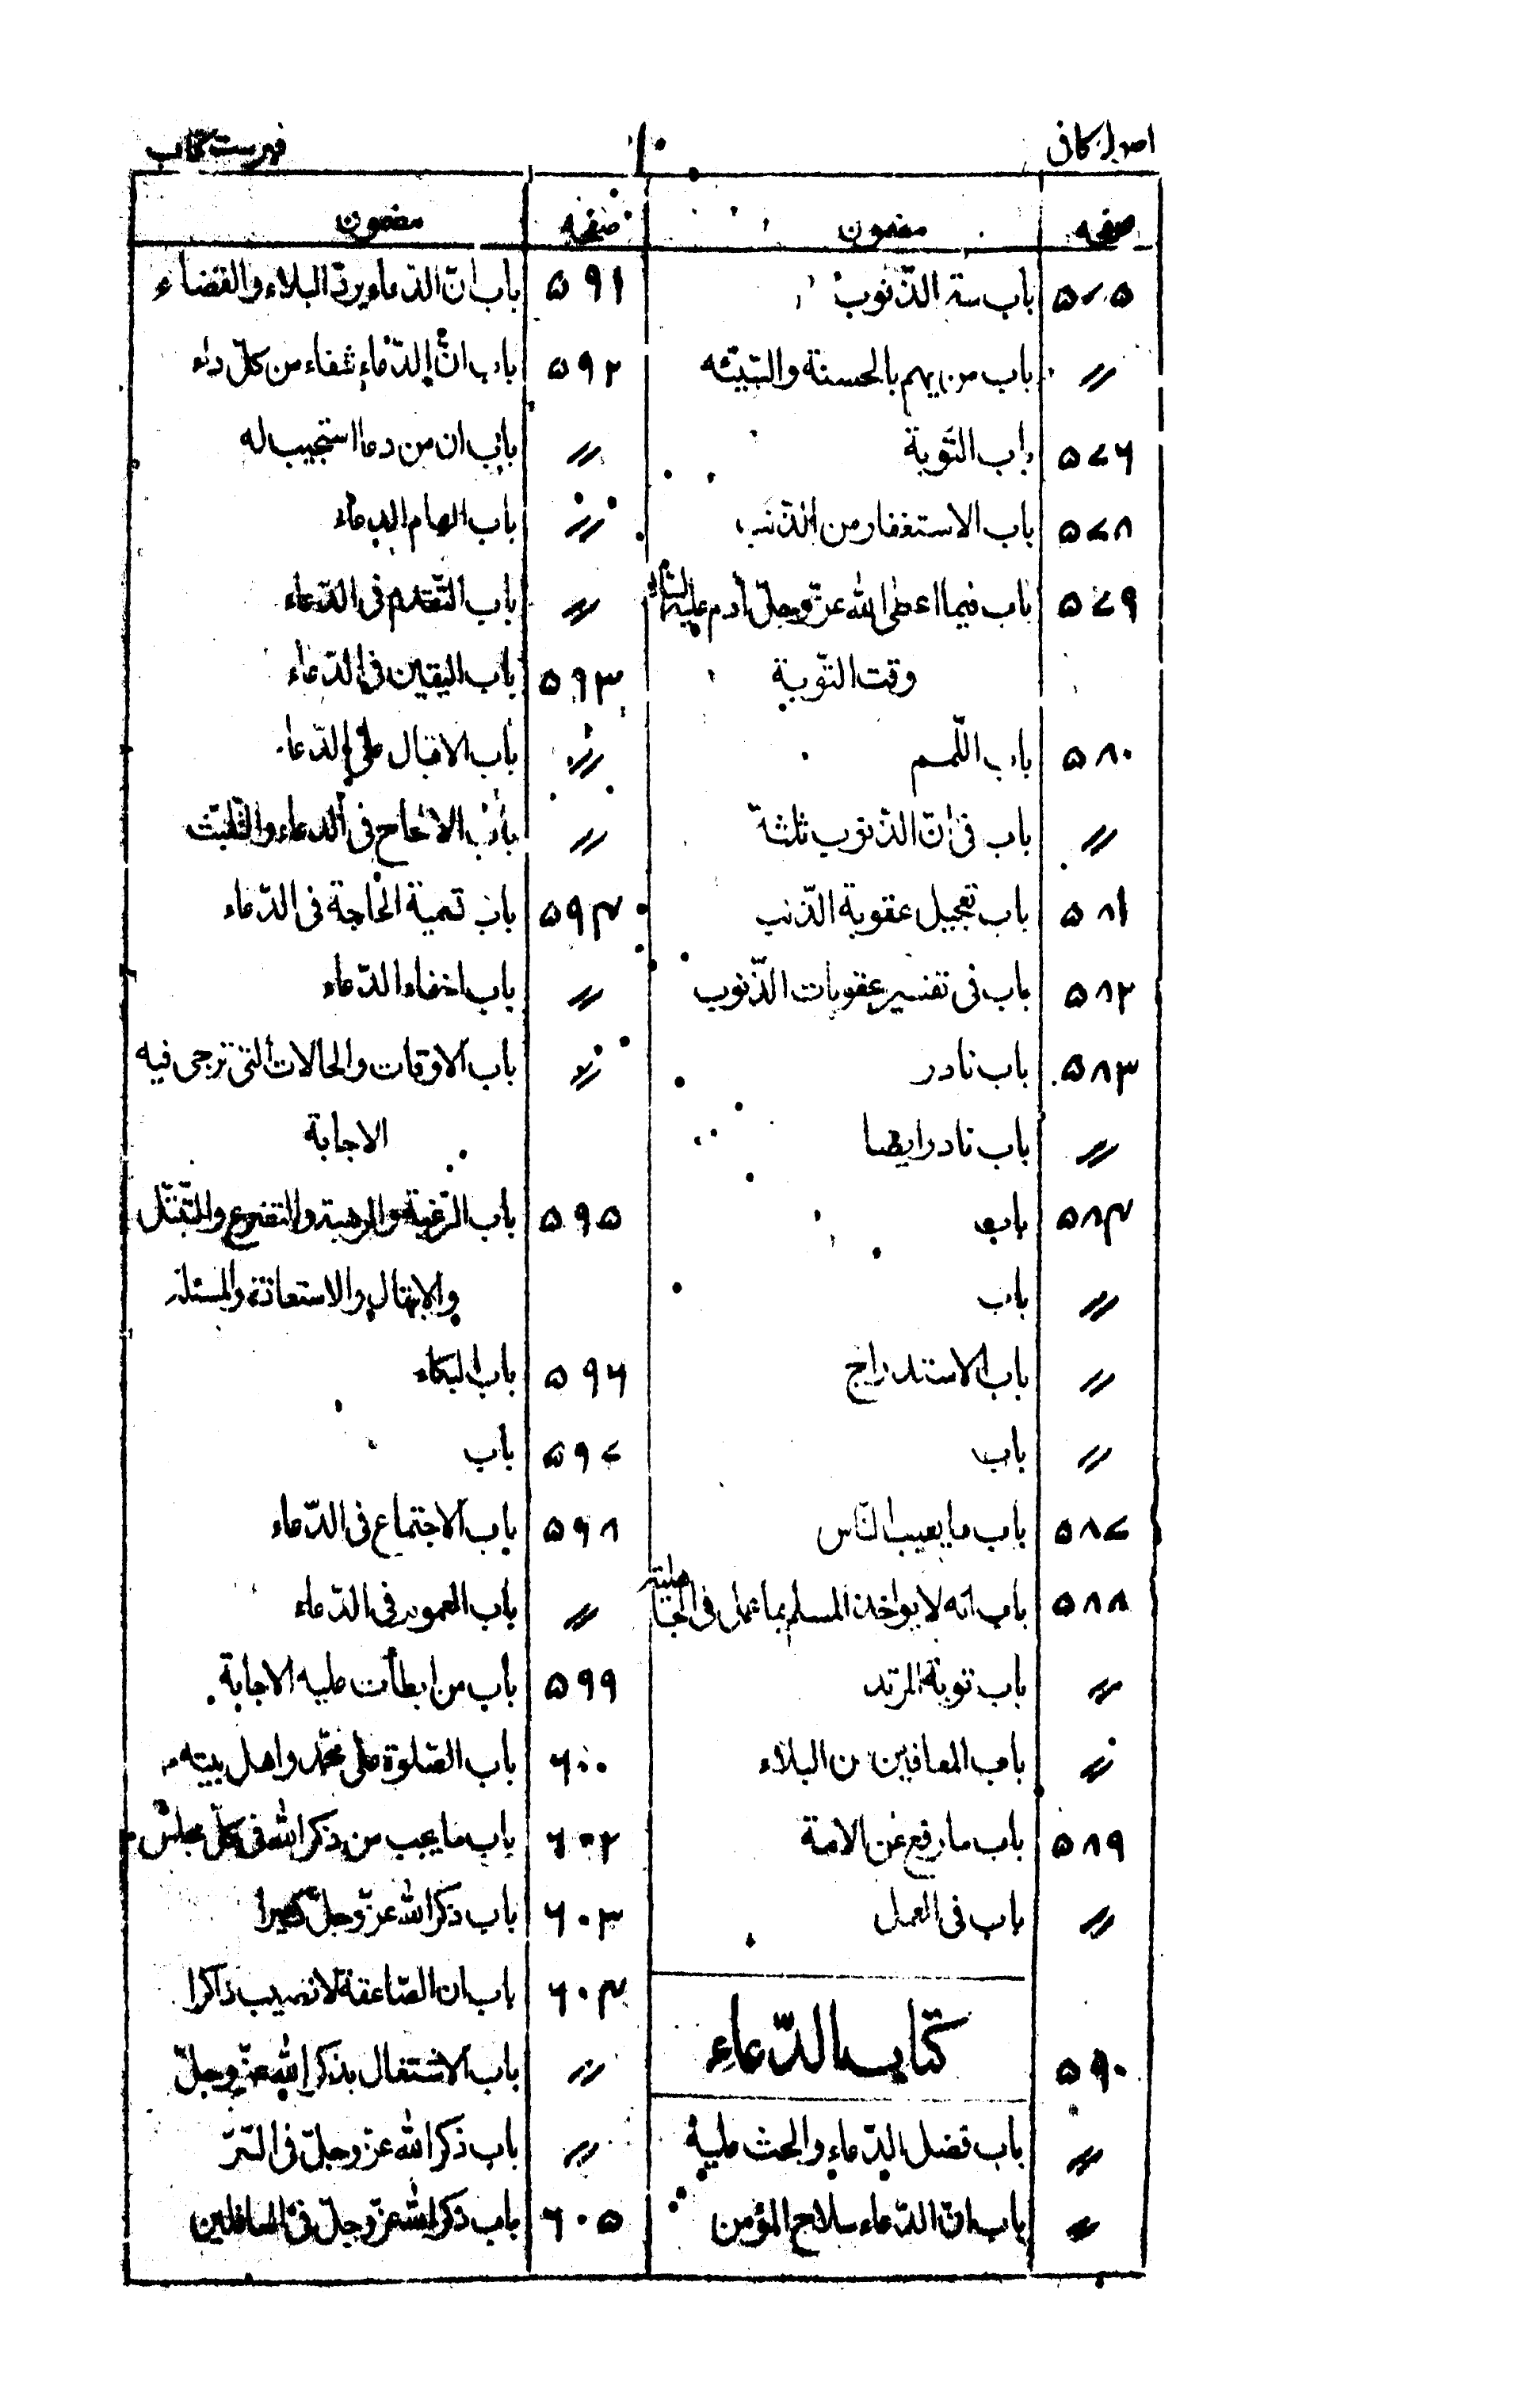 اصول کافی ۱۰ فہرست کتاب
صفحہ مضمون
۵۷۵ باب ستر الذّنوب
〃 باب من یهم بالحسنة والسّیّئه
۵۷۶ باب التّوبة
۵۷۸ باب الاستغفار من الذّنب
۵۷۹ باب فیما اعطی اللہ عزّوجلّ آدم علیہ السّلام
وقت التّوبة
۵۸۰ باب اللّمم
〃 باب فی انّ الذّنوب ثلثة
۵۸۱ باب تعجیل عقوبة الذّنب
۵۸۲ باب فی تفسیر عقوبات الذّنوب
۵۸۳ باب نادر
〃 باب نادر ایضا
۵۸۴ باب
〃 باب
〃 باب الاستدراج
〃 باب
۵۸۷ باب ما یعیب النّاس
۵۸۸ باب انه لا یواخذ المسلم بما عمل فی الجاہلیّة
〃 باب توبة المرتد
〃 باب المعافین من البلاء
۵۸۹ باب ما رفع عن الامة
〃 باب فی العمل
۵۹۰ کتاب الدّعاء
〃 باب فضل الدّعاء والحث علیہ
〃 باب انّ الدّعاء سلاح المؤمن
صفحہ مضمون
۵۹۱ باب انّ الدّعاء یردّ البلاء والقضاء
۵۹۲ باب انّ الدّعاء شفاء من کلّ داء
〃 باب ان من دعا استجیب له
〃 باب الهام الدعاء
〃 باب التّقدم فی الدّعاء
۵۹۳ باب الیقین فی الدّعاء
〃 باب الاقبال علی الدّعاء
〃 باب الالحاح فی الدعاء والتّلبّث
۵۹۴ باب تسمیة الحاجة فی الدّعاء
〃 باب اخفاء الدّعاء
〃 باب الاوقات والحالات التی ترجی فیه
الاجابة
۵۹۵ باب الرّغبة والرهبة والتضرع والتّبتّل
والابتهال والاستعاذة والمسئلة
۵۹۶ باب البکاء
۵۹۷ باب
۵۹۸ باب الاجتماع فی الدّعاء
〃 باب العموم فی الدّعاء
۵۹۹ باب من ابطأت علیه الاجابة
۶۰۰ باب الصّلوة علی محمّد واهل بیته
۶۰۲ باب ما یجب من ذکر اللہ فی کلّ مجلس
۶۰۳ باب ذکر اللہ عزّوجلّ کثیرا
۶۰۴ باب ان الصّاعقة لا تصیب ذاکرا
〃 باب الاشتغال بذکر اللہ عزّوجلّ
〃 باب ذکر اللہ عزّوجلّ فی السّرّ
۶۰۵ باب ذکر اللہ عزّوجلّ فی الغافلین